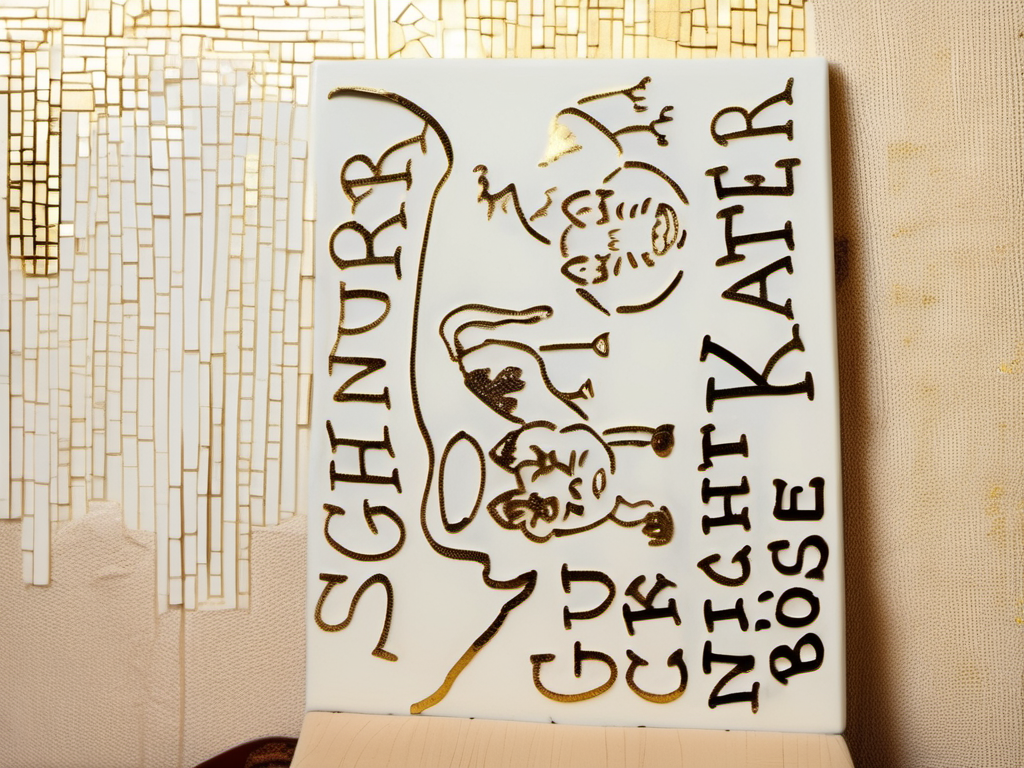 SGHNURR
GU
CK
NIGHT KATER
BÖSE